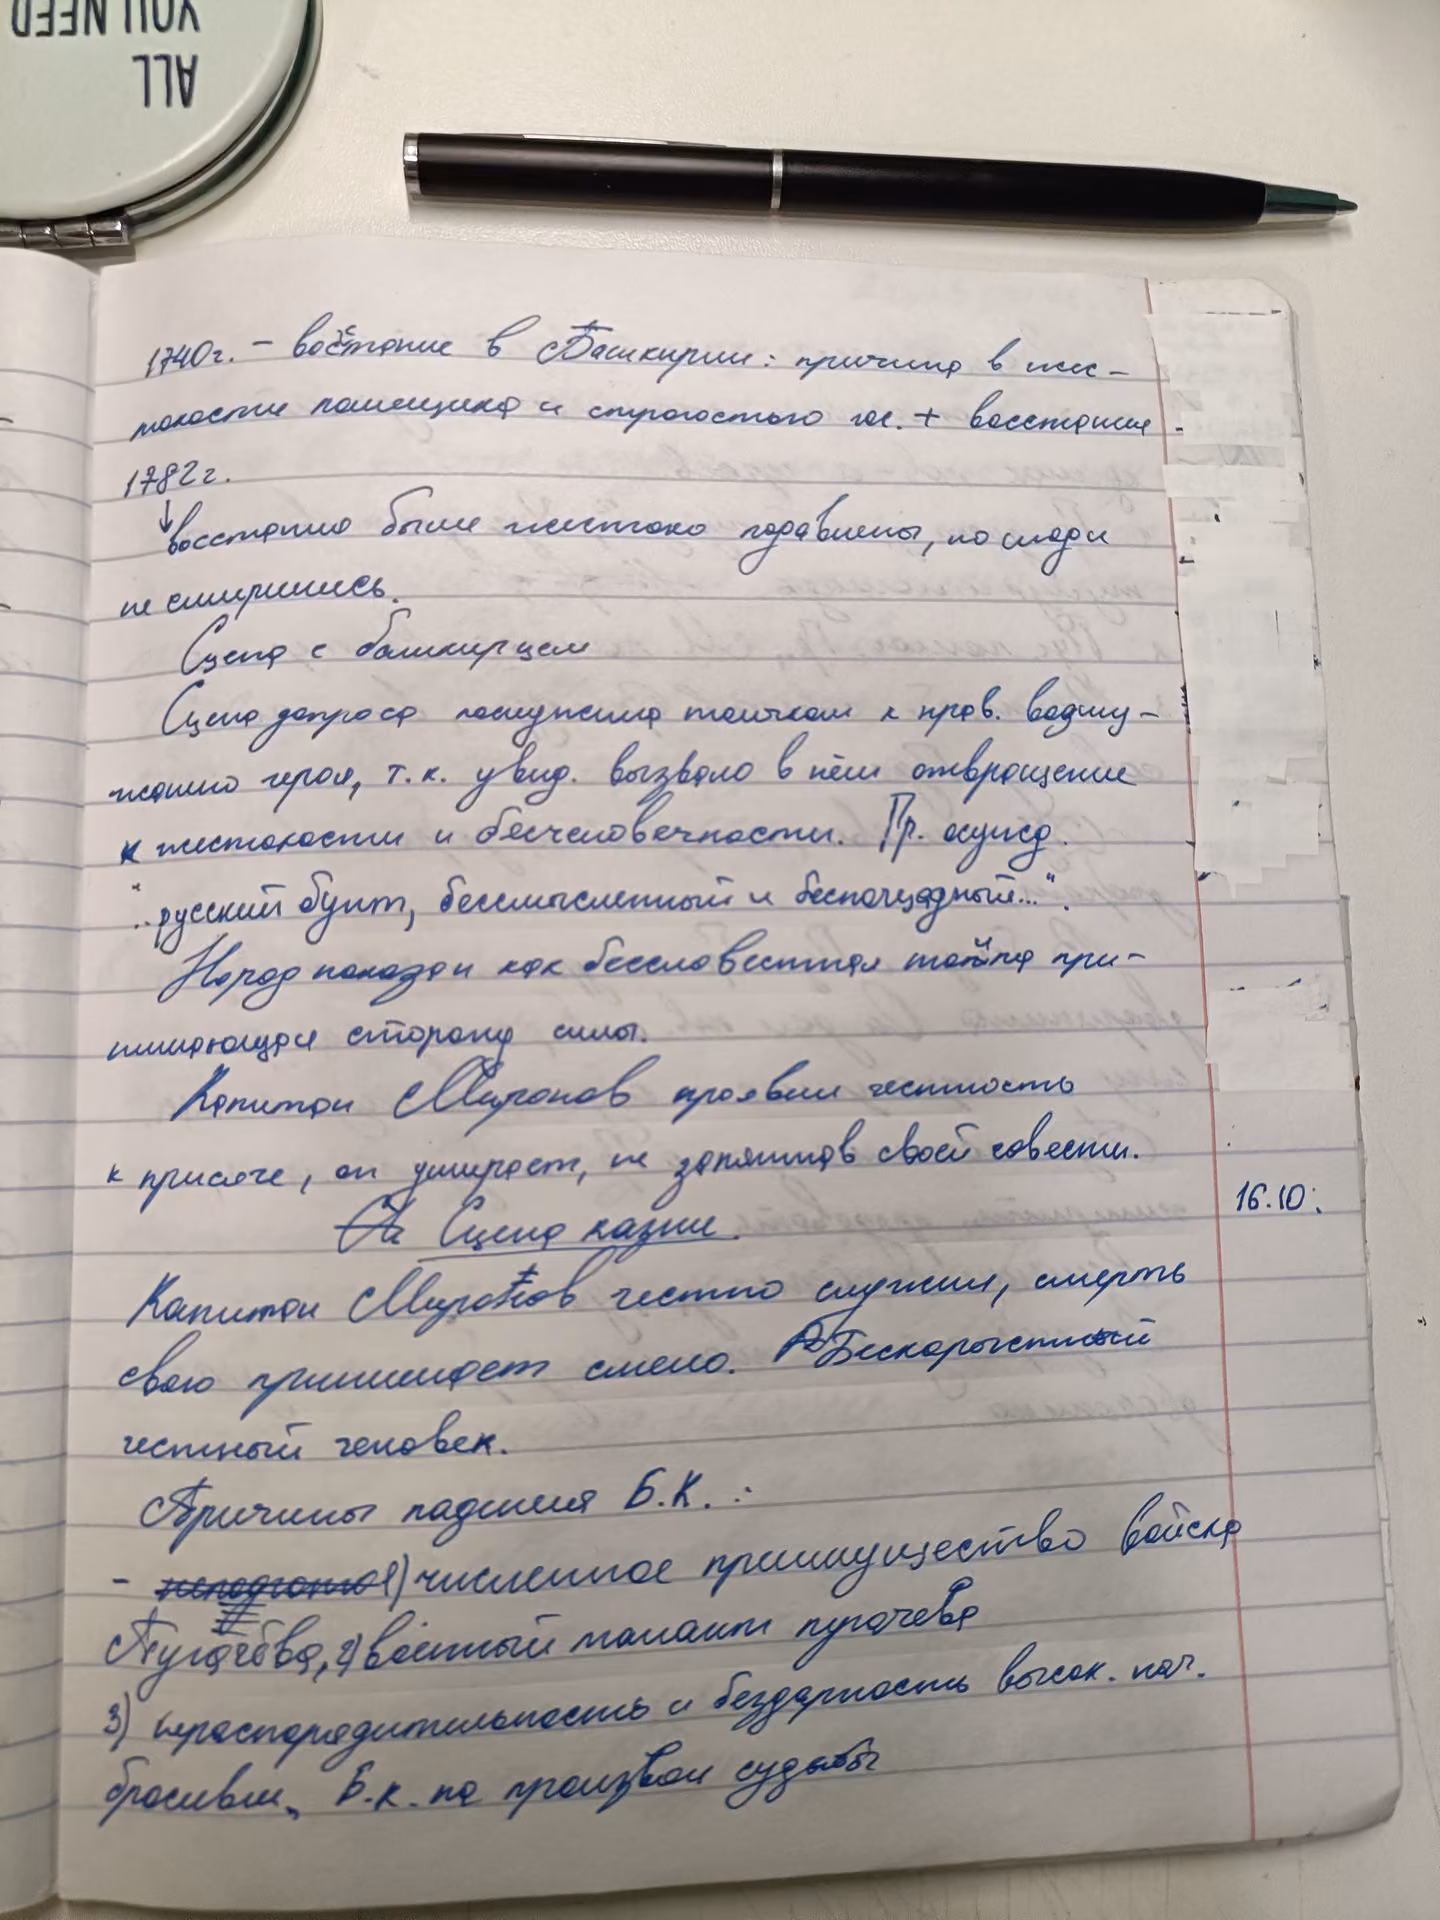 YOU NEED
ALL
1740г. - восстание в Башкирии: причина в жес-
токости помещика и строгостью гос. + восстание
1782г.
восстания были жестоко подавлены, но люди
не смирились.
Сцена с башкирцем
Сцена допроса послужила толчком к прав. возму-
жанию героя, т.к. увид. вызвало в нём отвращение
к жестокости и бесчеловечности. Гр. осужд.
"..русский бунт, бессмысленный и беспощадный...".
Народ показан как бессловестная толпа при-
нимающая сторону силы.
Капитан Миронов проявил честность
к присяге, он умирает, не запятнав своей совести.
16.10:
Сцена казни.
Капитан Миронов честно служил, смерть
свою принимает смело. Бескорыстный
честный человек.
Причины падения Б.К.:
- 1) численное приимущество войска
Пугачёва, 2) военный талант пугачева
3) нераспорядительность и бездарность высок. нач.
бросивш. Б.к. на произвол судьбы